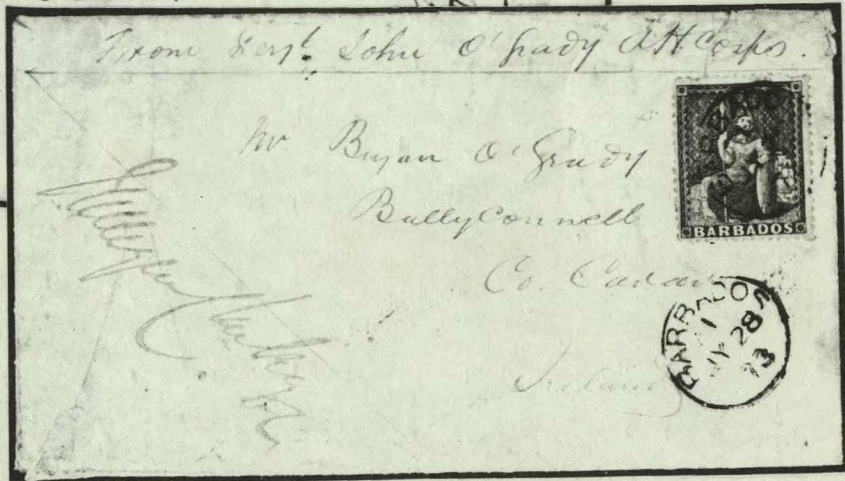 From Serjt. John O'Grady AH Corps.
Mr Bryan O'Grady
BallyConnell
Co. Cavan
Ireland
BARBADOS
BARBADOS
1
JY 28
73